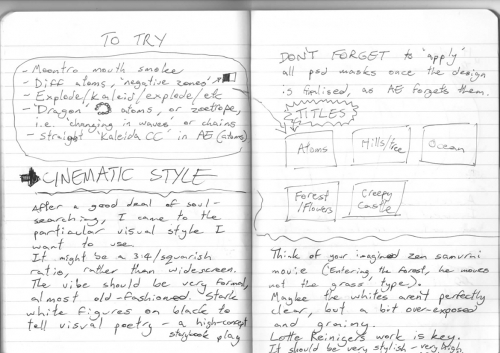 TO TRY
- Moontro mouth smoke
- Diff atoms, 'negative zones'
- Explode/kaleid/explode/etc
- 'Dragon' atoms, or zoetrope,
i.e. 'changing in waves' or chains
- straight 'Kaleida CC' in AE (atoms)
CINEMATIC STYLE
After a good deal of soul-
searching, I came to the
particular visual style I
want to use.
It might be a 3:4/squarish
ratio, rather than widescreen.
The vibe should be very formal,
almost old-fashioned. Stark
white figures on black to
tell visual poetry - a high-concept
storybook play
DON'T FORGET to 'apply'
all psd masks once the design
is finalised, as AE forgets them.
TITLES
Atoms
Hills/Tree
Ocean
Forest
/Flowers
Creepy
Castle
Think of your imagined zen samurai
movie ('Entering the forest, he moves
not the grass' type).
Maybe the whites aren't perfectly
clear, but a bit over-exposed
and grainy.
Lotte Reinigers work is key.
It should be very stylish - very high